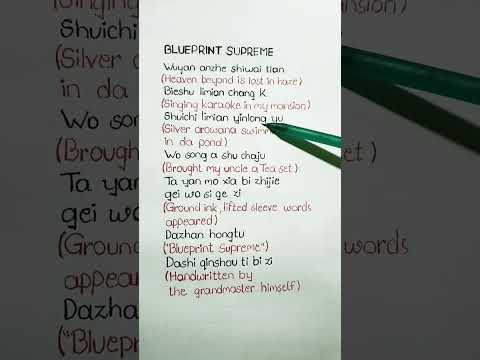 BLUEPRINT SUPREME
Wuyan anzhe shiwai tian
(Heaven beyond is lost in haze)
Bieshu limian chang K
(Singing karaoke in my mansion)
Shuichi limian yinlong yu
(Silver arowana
in da pond)
Wo song a shu chaju
(Brought my uncle a Tea set)
Ta yan mo xia bi zhijie
gei wo si ge zi
(Ground ink, lifted sleeve words
appeared)
Dazhan hongtu
("Blueprint Supreme")
Dashi qinshou ti bi zi
(Handwritten by
the grandmaster himself)